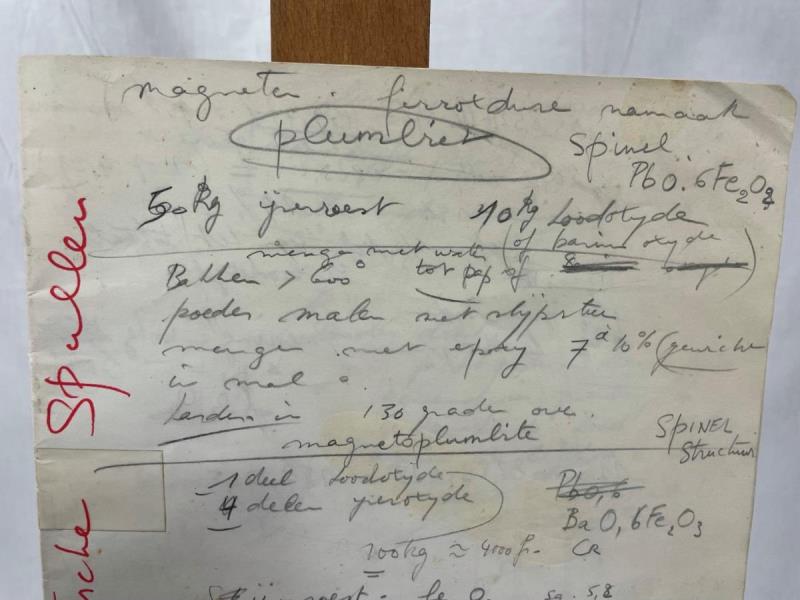 magneten. ferroxdure namaak
plumbiet
Spinel.
PbO.6Fe2O3
50 Kg ijzerroest 10 Kg Loodoxyde
mengen met water (of barium oxyde)
Bakken > 600° tot pap of
poeder malen met slijpsteen
mengen met epoxy 7 à 10% (gewicht
in mal.
harden in 130 graden oven.
magnetoplumbite
SPINEL
Structuur
1 deel Loodoxyde
4 delen ijzeroxyde
Pb0,6
BaO,6Fe2O3
100kg ≈ 4000 fr. CR
Spullen